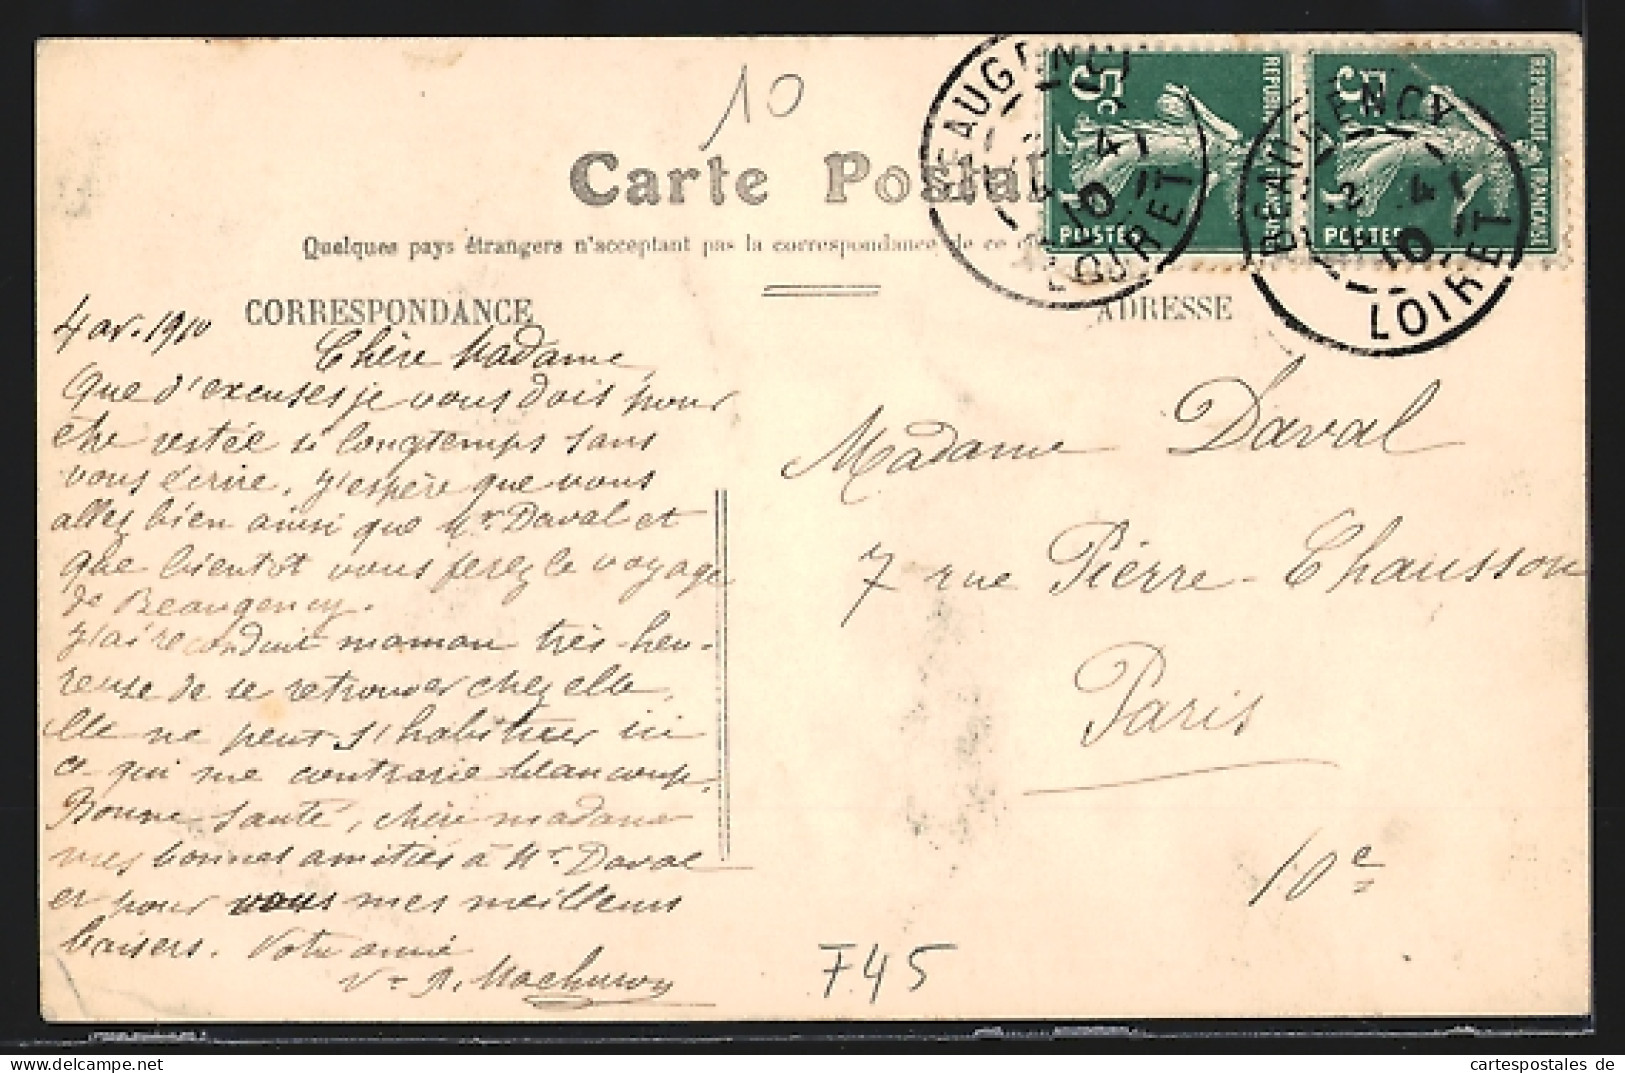 10
Carte Postal
Quelques pays étrangers n'acceptent pas la correspondance de ce
CORRESPONDANCE
ADRESSE
5c
REPUBLIQUE FRANÇAISE
POSTES
5
REPUBLIQUE FRANÇAISE
POSTES
BEAUGENCY
4
10
LOIRET
BEAUGENCY
12 4
10
LOIRET
4 av. 1910
Chère Madame,
Que d'excuses je vous dois pour
être restée si longtemps sans
vous écrire, j'espère que vous
allez bien ainsi que Mr Daval et
que bientôt vous ferez le voyage
de Beaugency.
J'ai reconduit maman très heu-
reuse de se retrouver chez elle,
elle ne peut s'habituer ici
ce qui me contrarie beaucoup.
Bonne santé, chère madame
mes bonnes amitiés à Mr Daval
et pour vous mes meilleurs
baisers. Votre amie
Vve A. Machuron
Madame Daval
7 rue Pierre-Chausson
Paris
10e
F45
cartespostales de